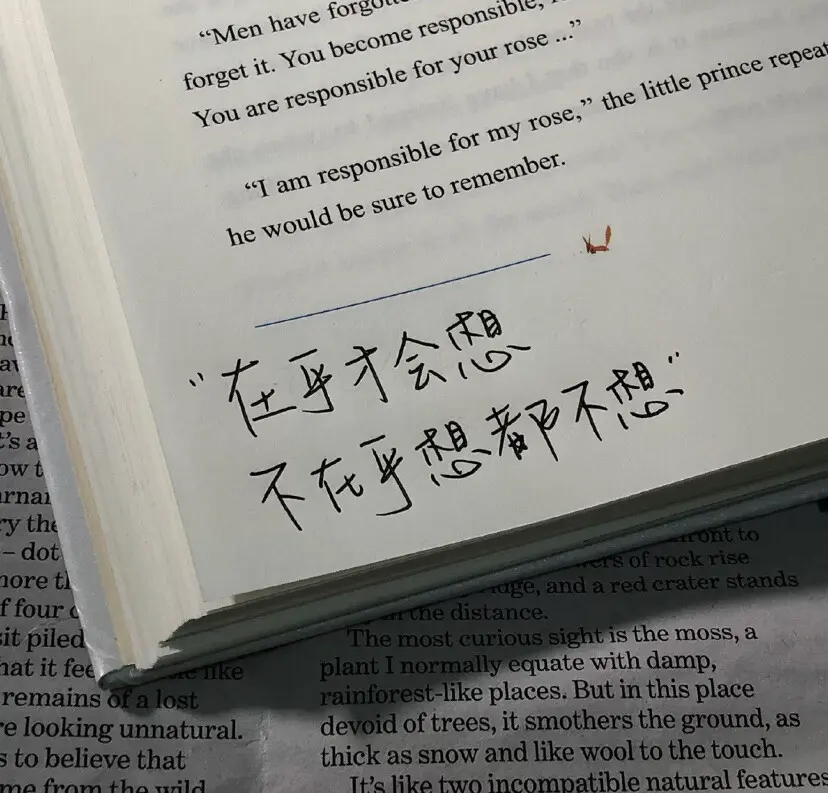 “Men have
forget it. You become responsible,
You are responsible for your rose ...”
“I am responsible for my rose,” the little prince
he would be sure to remember.
“在乎才会想
不在乎想都不想”
ry the
– dot
f four
sit piled
like
remains of a lost
looking unnatural.
to believe that
from the wild
to
of rock rise
and a red crater stands
in the distance.
The most curious sight is the moss, a
plant I normally equate with damp,
rainforest-like places. But in this place
devoid of trees, it smothers the ground, as
thick as snow and like wool to the touch.
It’s like two incompatible natural features